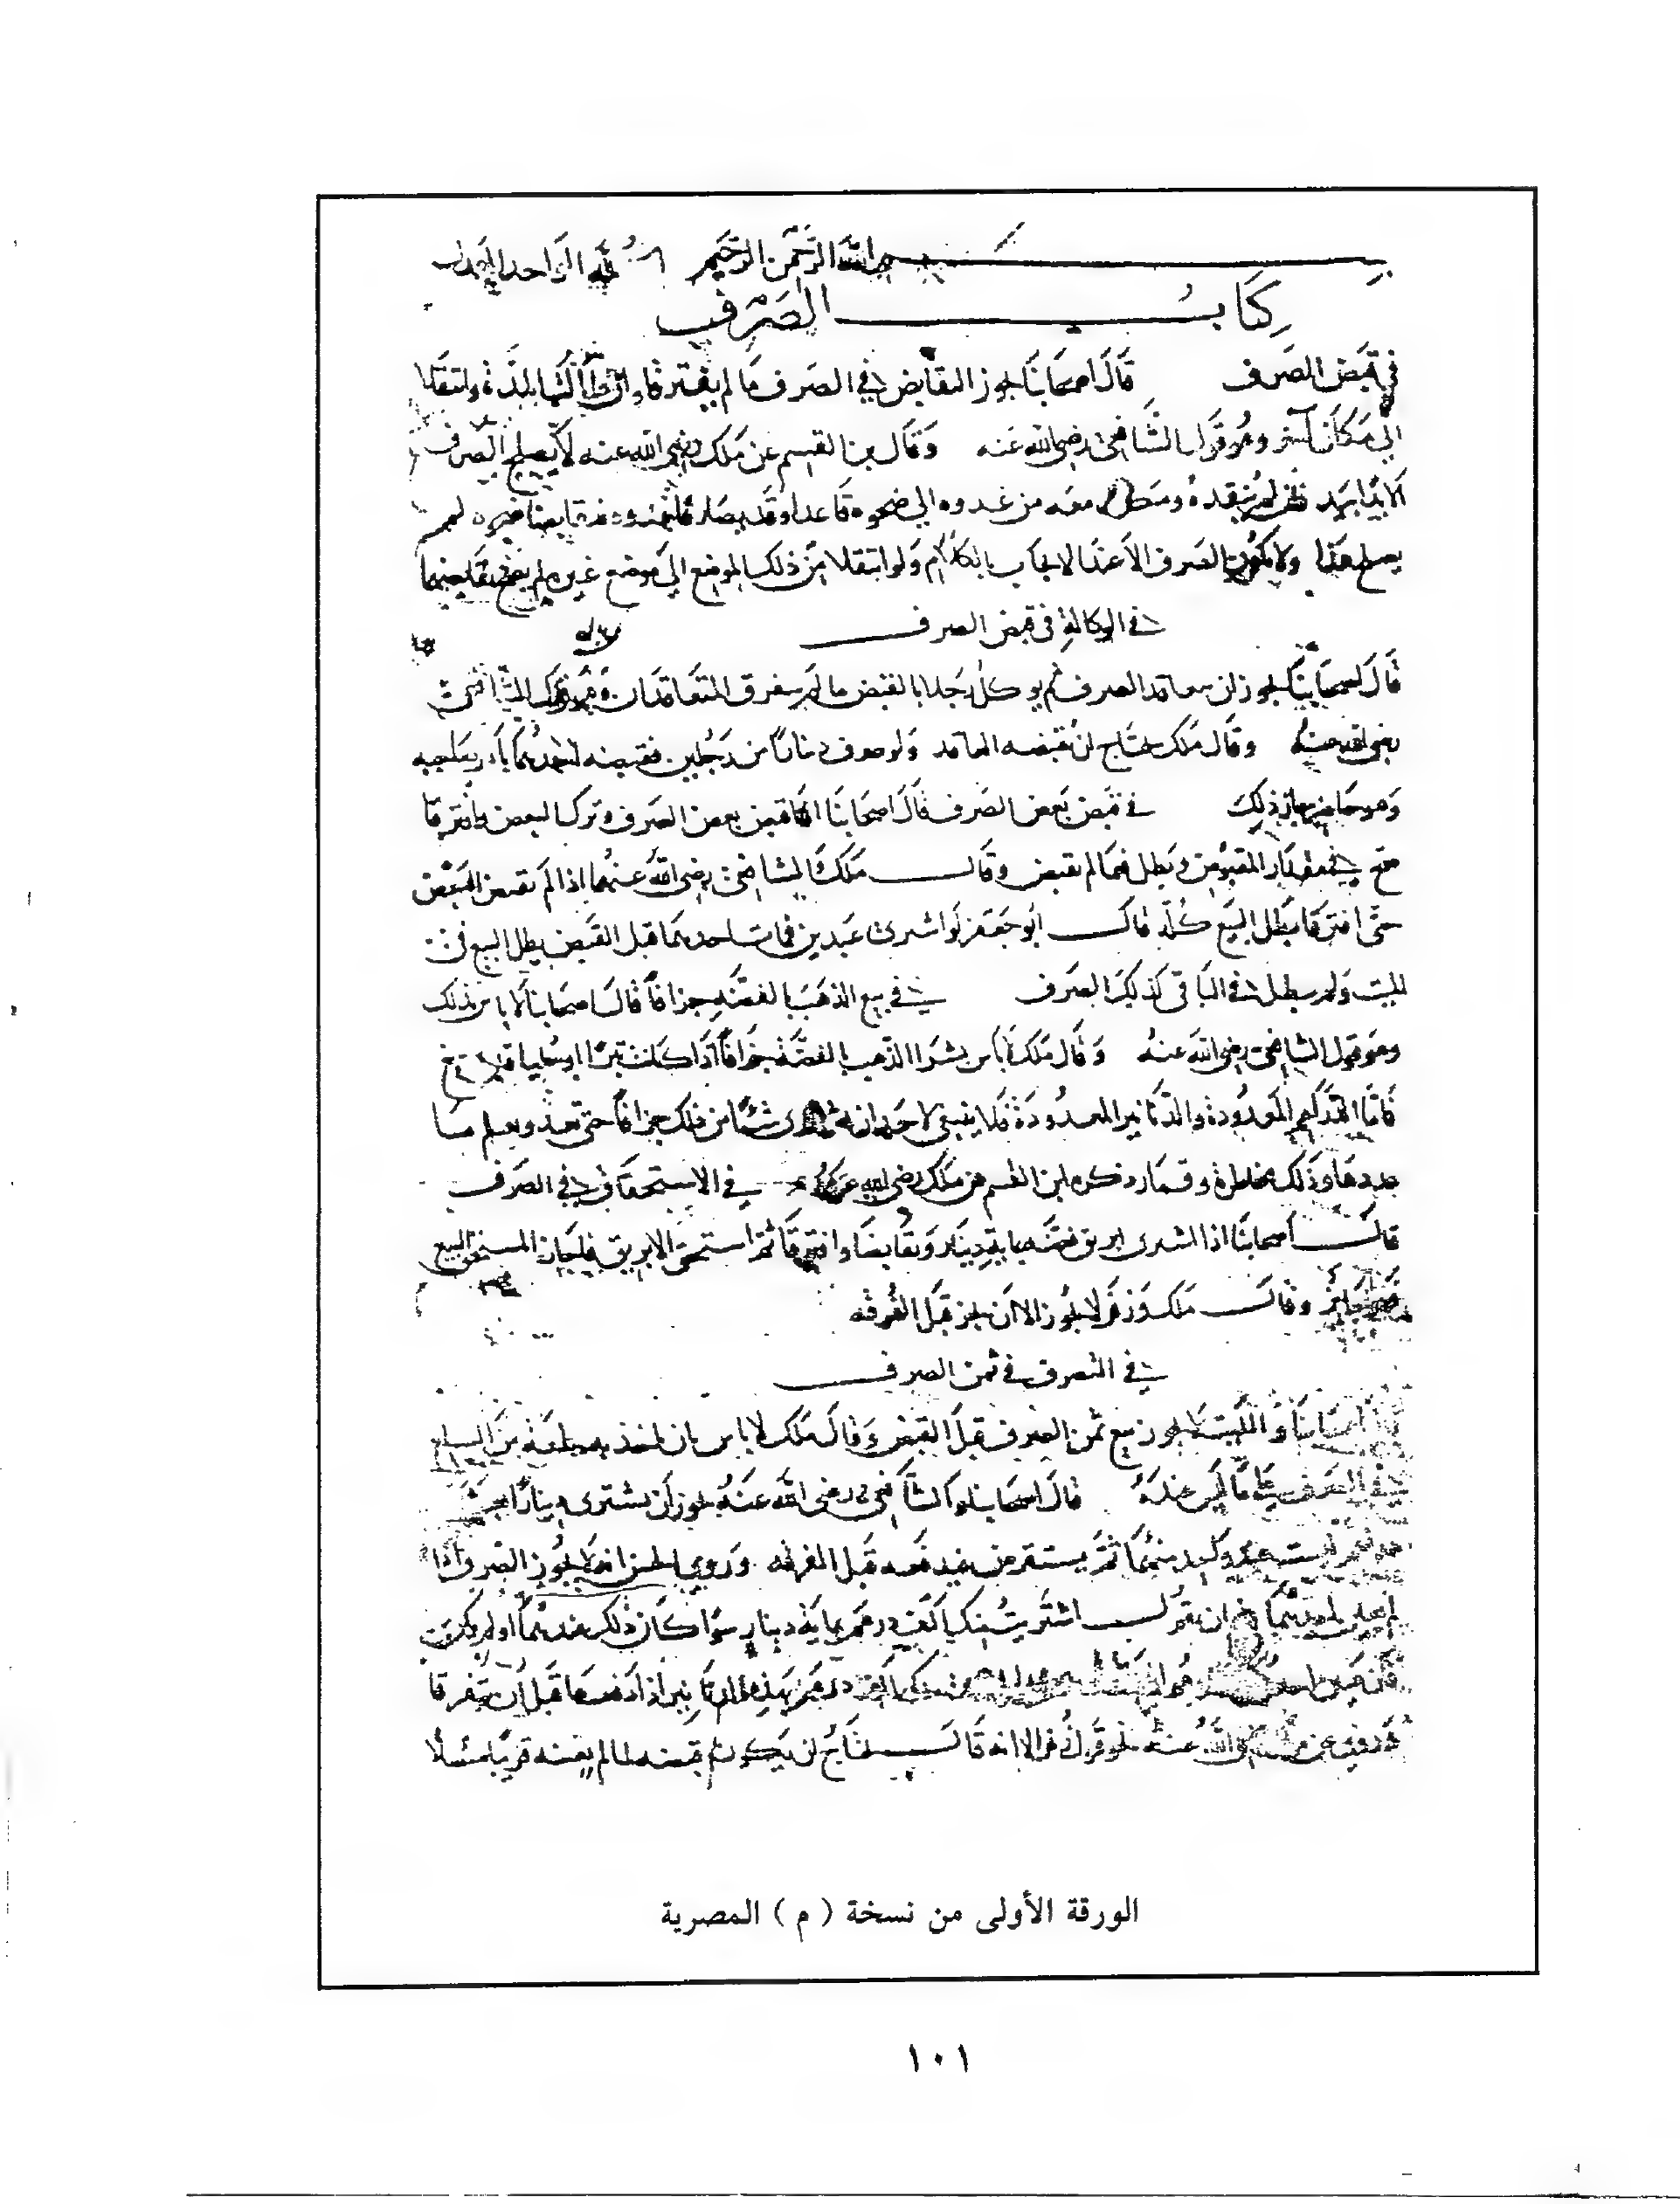 بسم الله الرحمن الرحيم لله الواحد
كتاب الصرف
في قبض الصرف قال اصحابنا يجوز التقابض في الصرف ما لم يفترقا وان طالت المدة وانتقلا
الى مكان آخر وهو قول الشافعي رضي الله عنه وقال بن القسم عن ملك رضي الله عنه لا يصلح الصرف
الا يدا بيد فان لم ينقده ومكث معه من غدوه الى ضحوه قاعدا وقد تصارفا غدوة لم
يصلح هذا ولا يكون الصرف الا عند الايجاب بالكلام ولو انتقلا من ذلك الموضع الى موضع غيره لم يصح تقابضهما
في الوكالة في قبض الصرف
قال اصحابنا يجوز ان يعاقد الصرف ثم يوكل رجلا بالقبض ما لم يتفرق المتعاقدان وهو قول الشافعي
رضي الله عنه وقال ملك يحتاج ان يقبضه العاقد ولو صرف دينارا من رجلين فقبضه احدهما باذن صاحبه
وهو حاضر جاز ذلك في قبض بعض الصرف قال اصحابنا اذا قبض بعض الصرف وترك البعض وافترقا
صح في مقدار المقبوض وبطل فيما لم يقبض وقال ملك والشافعي رضي الله عنهما اذا لم يقبض البعض
حتى افترقا بطل البيع كله قال ابو جعفر لو اشترى عبدين فمات احدهما قبل القبض بطل البيع في
الميت ولم يبطل في الباقي كذلك الصرف في بيع الذهب بالفضة جزافا قال اصحابنا لا باس بذلك
وهو قول الشافعي رضي الله عنه وقال ملك لا باس بشرا الذهب بالفضة جزافا اذا كانت تبرا او حليا قد صيغ
فاما الدراهم المعدودة والدنانير المعدودة فلا ينبغي لاحد ان يشتري شيئا من ذلك جزافا حتى تعد ويعلم ما
عددها وذلك مخاطرة وقمار ذكره ابن القسم عن ملك رضي الله عنه في الاستحقاق في الصرف
قال اصحابنا اذا اشترى ابريق فضة بماية دينار وتقابضا وافترقا ثم استحق الابريق فاجاز المستحق البيع
فهو جائز وقال ملك وزفر لا يجوز الا ان يجيز قبل الفرقه
في التصرف في ثمن الصرف
اصحابنا والليث لا يجوز بيع ثمن الصرف قبل القبض وقال ملك لا باس بان ياخذ به سلعة من السلع
في الصرف على ما ليس عنده قال اصحابنا والشافعي رضي الله عنه يجوز ان يشتري دينارا
ليست عند واحد منهما ثم يستقرض فيدفعه قبل الفرقه وروى الحسن انه لا يجوز الصرف اذا
لم ان يقول اشتريت منك الف درهم بماية دينار سوا كان ذلك عندهما او لم يكن
الف درهم بهذه الدنانير اذا دفعها قبل ان يتفرقا
وروي عن ملك رضي الله عنه نحو قول زفر الا انه قال يحتاج ان يكون قبضه لما لم يعينه قريبا متصلا
الورقة الأولى من نسخة ( م ) المصرية
١٠١